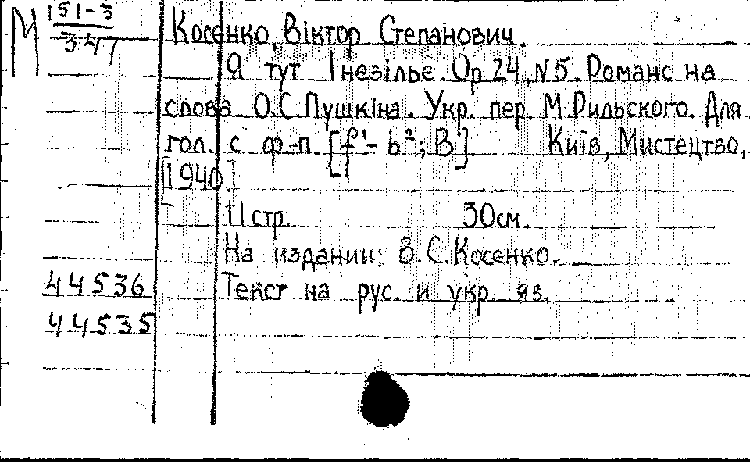 М 151-3
347
Косенко, Віктор Степанович.
Я тут Інезільє. Ор 24, N5. Романс на
слова О.С.Пушкіна. Укр. пер. М.Рильского. Для
гол. с ф-п. [f¹- b²; B] Київ, Мистецтво,
[1940]
11 стр. 30см.
На издании: В.С.Косенко.
44536 Текст на рус. и укр. яз.
44535